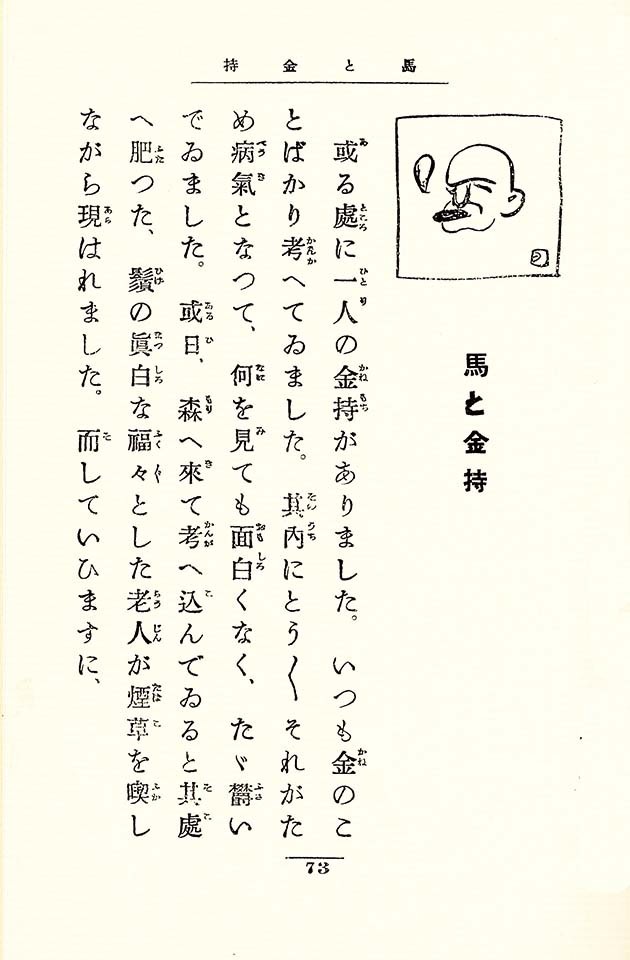 馬と金持
馬と金持
或る處に一人の金持がありました。いつも金のこ
とばかり考へてゐました。其内にとう〳〵それがた
め病氣となつて、何を見ても面白くなく、たゞ欝い
でゐました。或日、森へ來て考へ込んでゐると其處
へ肥つた、鬚の眞白な福々とした老人が煙草を喫し
ながら現はれました。而していひますに、
73